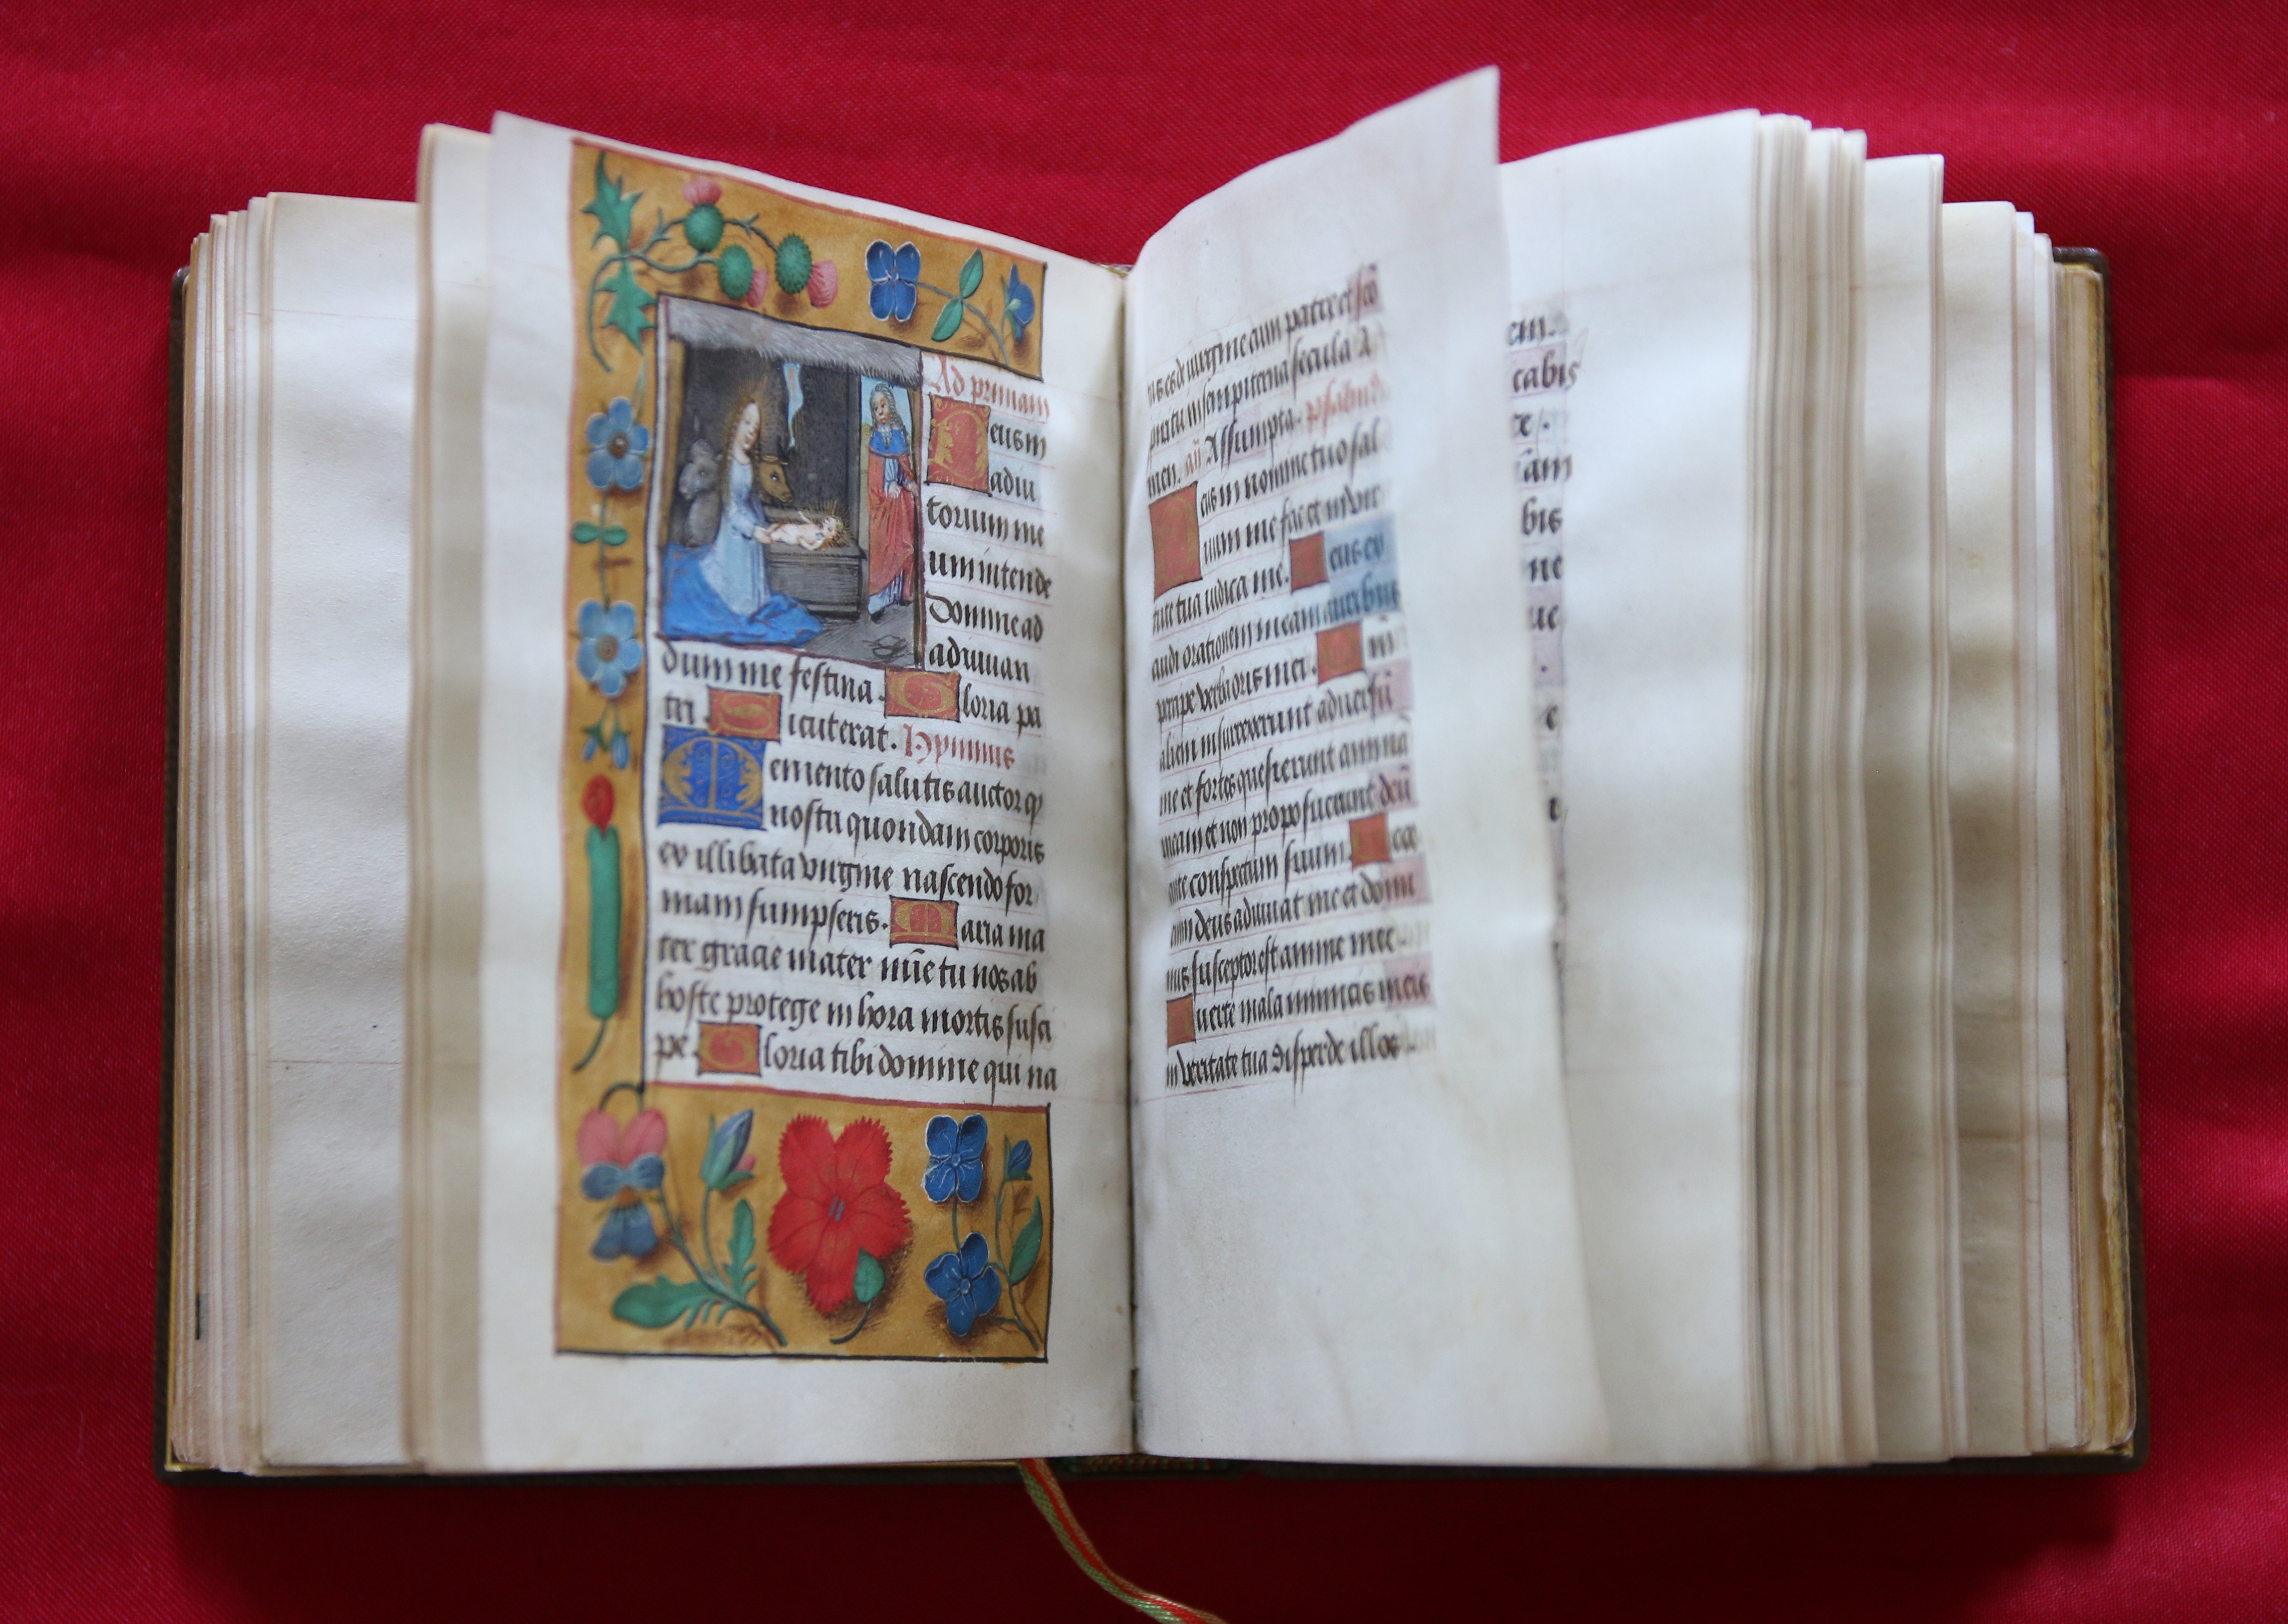 Ad primam
Deus in
adiu
torium me
um intende
Domine ad
adiuuan
dum me festina. Gloria pa
tri. Sicut erat. Hymnus
Memento salutis auctor q
nostri quondam corporis
ex illibata virgine nascendo for
mam sumpseris. Maria ma
ter gracie mater mīe tu nos ab
hoste protege in hora mortis susci
pe. Gloria tibi domine qui na
tus es de uirgine cum patre et scō
spiritu in sempiterna secula A
men. añ Assumpta. psalmus
Deus in nomine tuo sal
uum me fac et in vir
tute tua iudica me. Deus ex
audi orationem meam auribus
percipe verba oris mei. 
alieni insurrexerunt aduersū
me et fortes quesierunt animā
meam et non proposuerunt deū
ante conspectum suum. Ecce
enim deus adiuuat me et domi
nus susceptor est anime mee
Auerte mala inimicis meis
in veritate tua disperde illos
em.
cabis
te.
am
bis
ne
ue